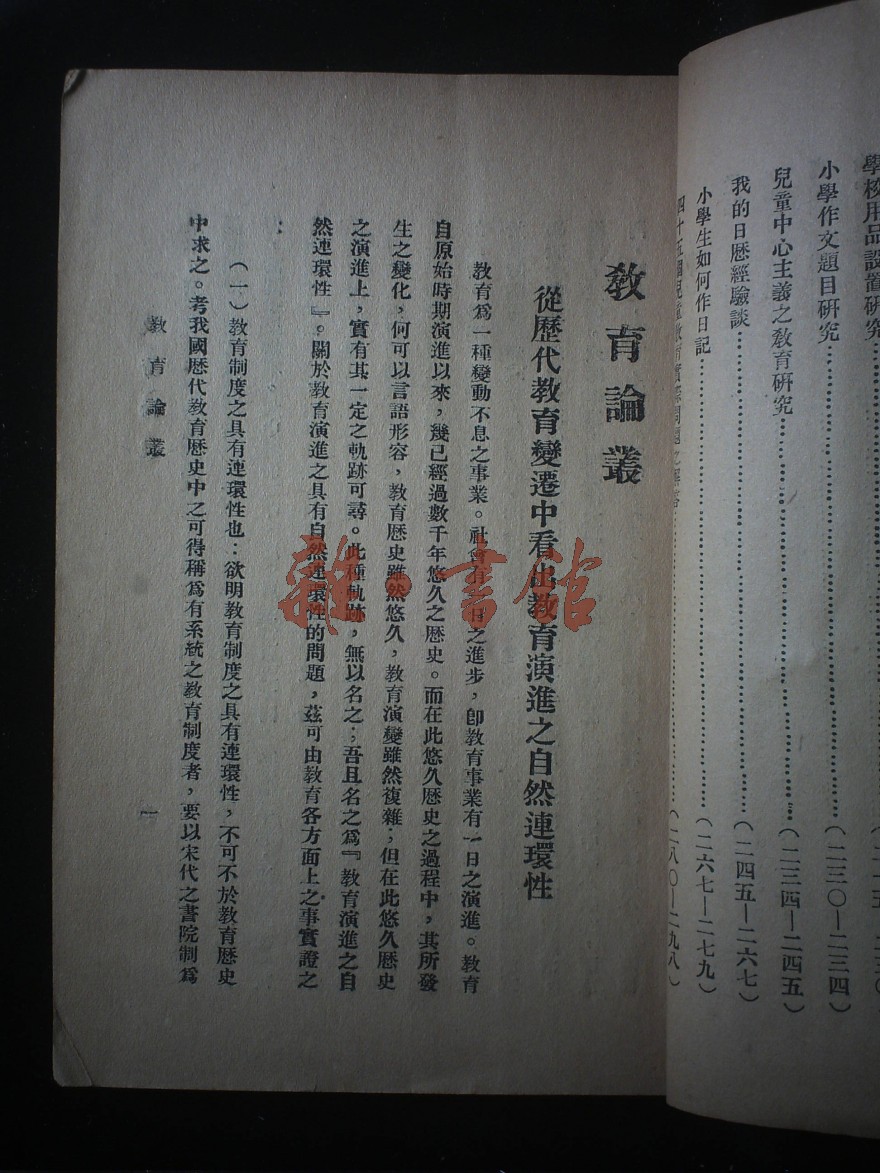 學校用品設置研究
小學作文題目研究……(二三〇—二三四)
兒童中心主義之教育研究……(二三四—二四五)
我的日歷經驗談……(二四五—二六七)
小學生如何作日記……(二六七—二七九)
四十五個兒童教育實際問題之解答……(二八〇—二九八)
教育論叢
從歷代教育變遷中看出教育演進之自然連環性
教育爲一種變動不息之事業。社會有一日之進步,卽教育事業有一日之演進。教育
自原始時期演進以來,幾已經過數千年悠久之歷史。而在此悠久歷史之過程中,其所發
生之變化,何可以言語形容,教育歷史雖然悠久,教育演變雖然複雜;但在此悠久歷史
之演進上,實有其一定之軌跡可尋。此種軌跡,無以名之;吾且名之爲『教育演進之自
然連環性』。關於教育演進之具有自然連環性的問題,茲可由教育各方面上之事實證之
:
(一)教育制度之具有連環性也:欲明教育制度之具有連環性,不可不於教育歷史
中求之。考我國歷代教育歷史中之可得稱爲有系統之教育制度者,要以宋代之書院制爲
教育論叢
一
雜·書館